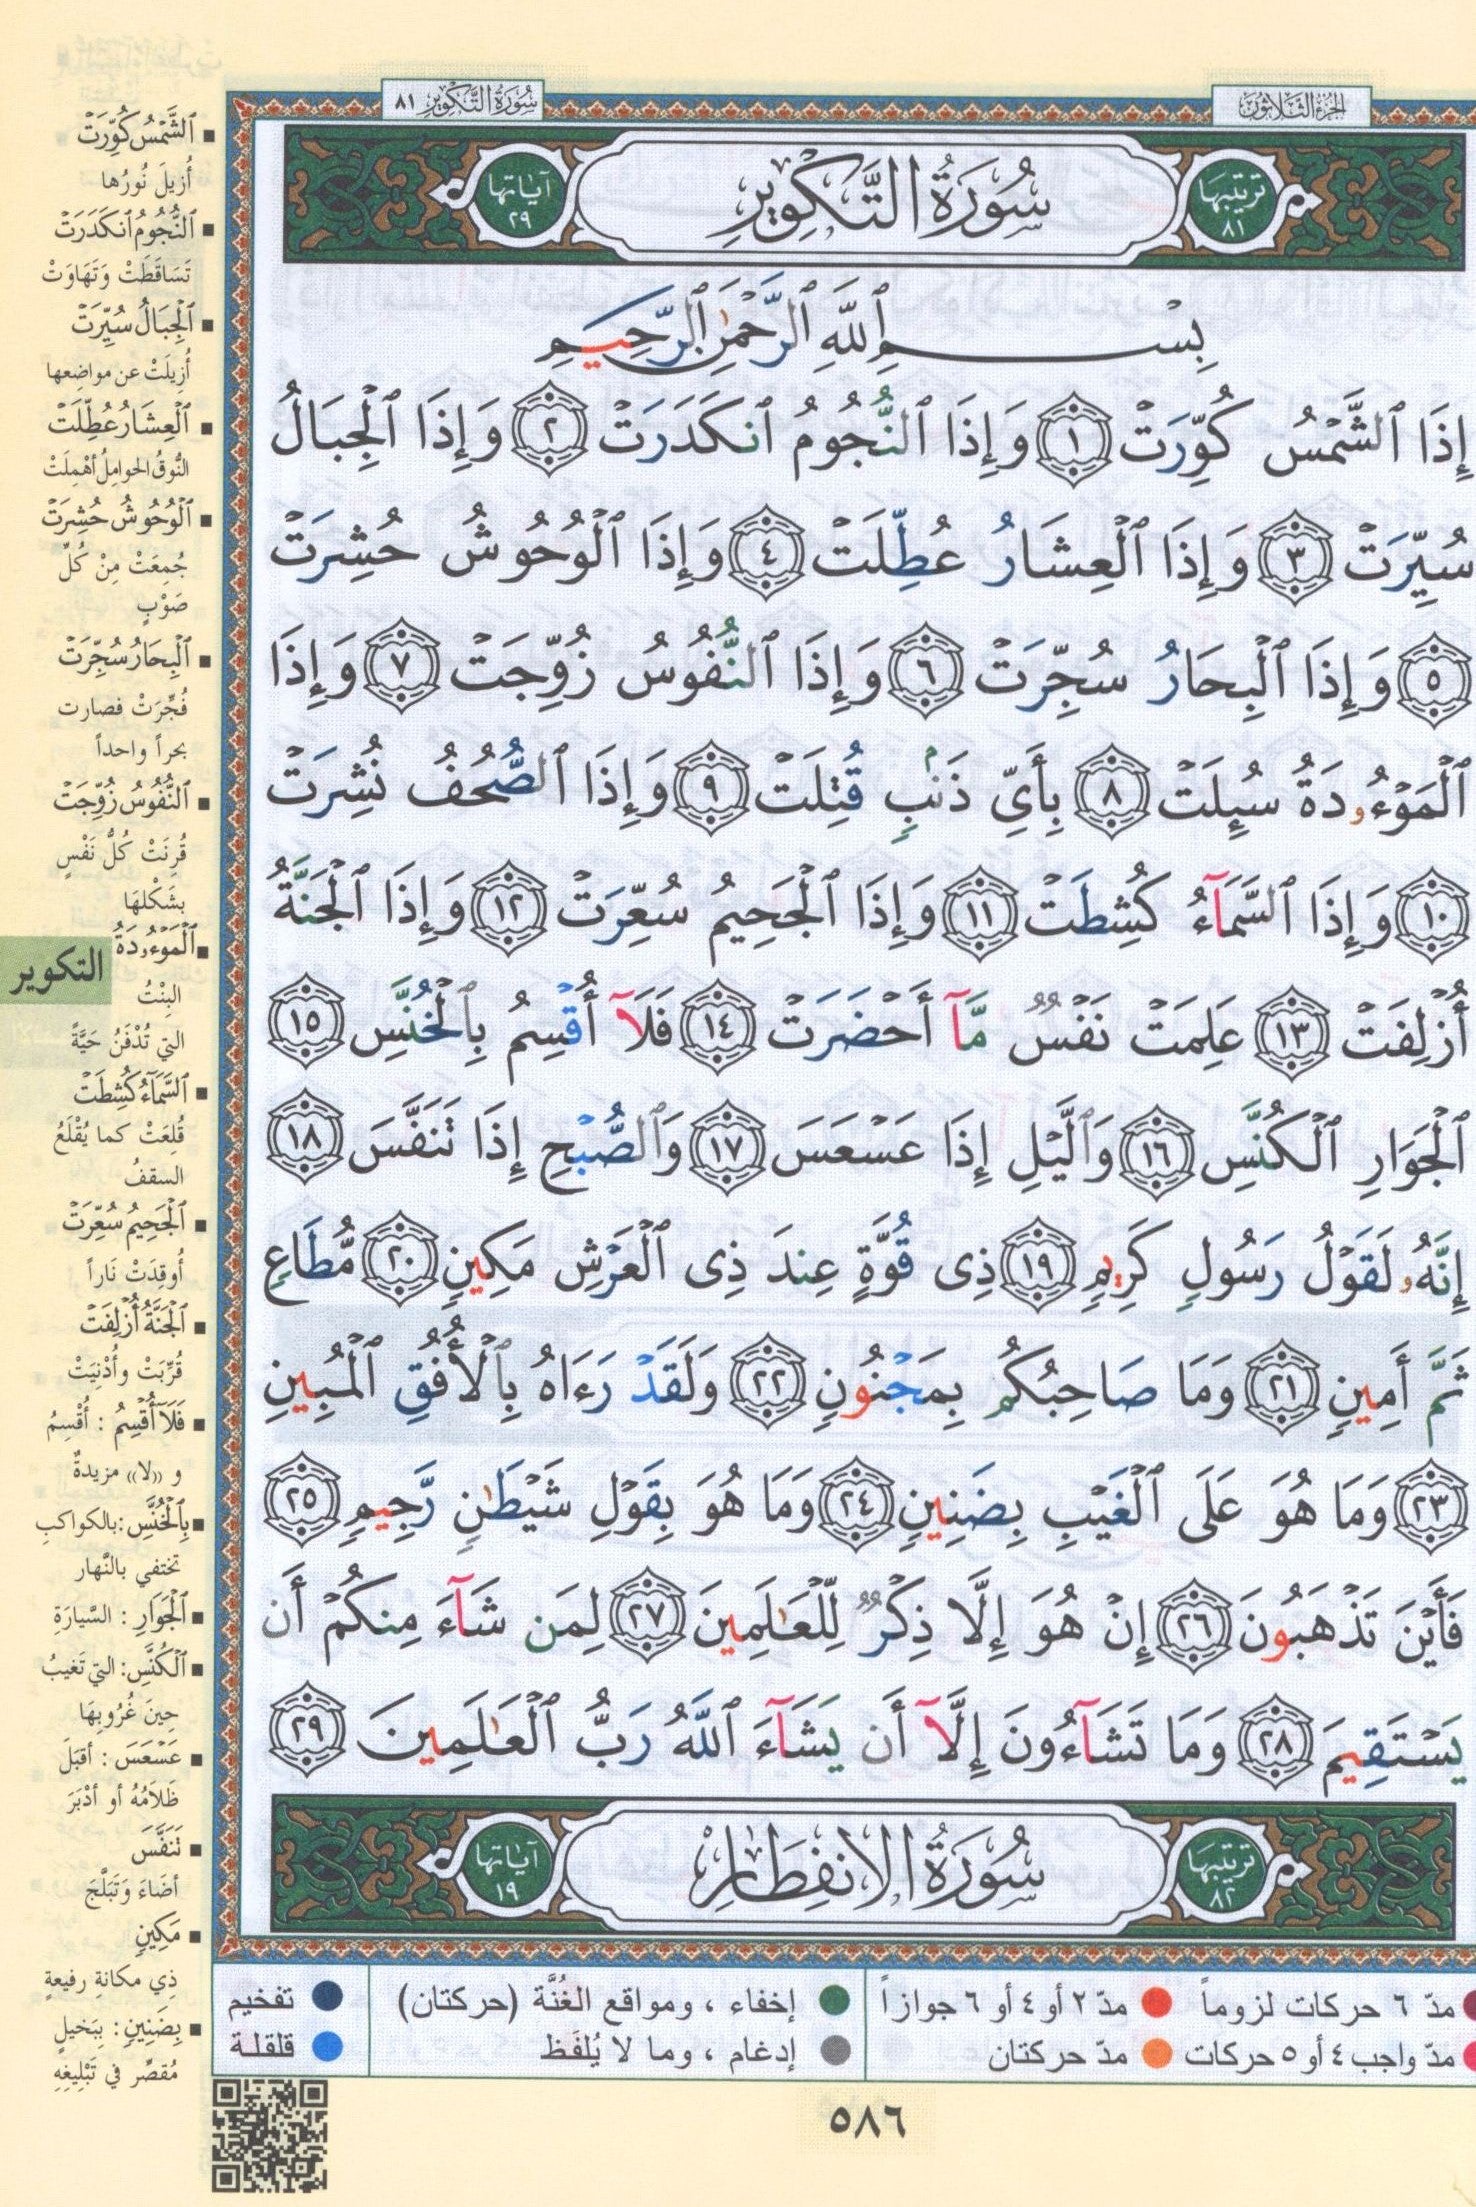 الجزء الثلاثون
سورة التكوير ٨١
ترتيبها ٨١
سُورَةُ التَّكْوِيرِ
آياتها ٢٩
بِسْمِ ٱللَّهِ ٱلرَّحْمَٰنِ ٱلرَّحِيمِ
إِذَا ٱلشَّمْسُ كُوِّرَتْ ١ وَإِذَا ٱلنُّجُومُ ٱنكَدَرَتْ ٢ وَإِذَا ٱلْجِبَالُ
سُيِّرَتْ ٣ وَإِذَا ٱلْعِشَارُ عُطِّلَتْ ٤ وَإِذَا ٱلْوُحُوشُ حُشِرَتْ
٥ وَإِذَا ٱلْبِحَارُ سُجِّرَتْ ٦ وَإِذَا ٱلنُّفُوسُ زُوِّجَتْ ٧ وَإِذَا
ٱلْمَوْءُۥدَةُ سُئِلَتْ ٨ بِأَىِّ ذَنۢبٍ قُتِلَتْ ٩ وَإِذَا ٱلصُّحُفُ نُشِرَتْ
١٠ وَإِذَا ٱلسَّمَآءُ كُشِطَتْ ١١ وَإِذَا ٱلْجَحِيمُ سُعِّرَتْ ١٢ وَإِذَا ٱلْجَنَّةُ
أُزْلِفَتْ ١٣ عَلِمَتْ نَفْسٌ مَّآ أَحْضَرَتْ ١٤ فَلَآ أُقْسِمُ بِٱلْخُنَّسِ ١٥
ٱلْجَوَارِ ٱلْكُنَّسِ ١٦ وَٱلَّيْلِ إِذَا عَسْعَسَ ١٧ وَٱلصُّبْحِ إِذَا تَنَفَّسَ ١٨
إِنَّهُۥ لَقَوْلُ رَسُولٍ كَرِيمٍ ١٩ ذِى قُوَّةٍ عِندَ ذِى ٱلْعَرْشِ مَكِينٍ ٢٠ مُّطَاعٍ
ثَمَّ أَمِينٍ ٢١ وَمَا صَاحِبُكُم بِمَجْنُونٍ ٢٢ وَلَقَدْ رَءَاهُ بِٱلْأُفُقِ ٱلْمُبِينِ
٢٣ وَمَا هُوَ عَلَى ٱلْغَيْبِ بِضَنِينٍ ٢٤ وَمَا هُوَ بِقَوْلِ شَيْطَٰنٍ رَّجِيمٍ ٢٥
فَأَيْنَ تَذْهَبُونَ ٢٦ إِنْ هُوَ إِلَّا ذِكْرٌ لِّلْعَٰلَمِينَ ٢٧ لِمَن شَآءَ مِنكُمْ أَن
يَسْتَقِيمَ ٢٨ وَمَا تَشَآءُونَ إِلَّآ أَن يَشَآءَ ٱللَّهُ رَبُّ ٱلْعَٰلَمِينَ ٢٩
ترتيبها ٨٢
سُورَةُ الانفِطَارِ
آياتها ١٩
ٱلشَّمْسُ كُوِّرَتْ
أُزيلَ نُورُها
ٱلنُّجُومُ ٱنكَدَرَتْ
تَسَاقَطَتْ وَتَهَاوَتْ
ٱلْجِبَالُ سُيِّرَتْ
أُزِيلَتْ عن مواضِعها
ٱلْعِشَارُ عُطِّلَتْ
النُّوقُ الحوامِلُ أُهْمِلَتْ
ٱلْوُحُوشُ حُشِرَتْ
جُمِعَتْ مِنْ كُلِّ
صَوْبٍ
ٱلْبِحَارُ سُجِّرَتْ
فُجِّرَتْ فصارت
بحراً واحداً
ٱلنُّفُوسُ زُوِّجَتْ
قُرِنَتْ كُلُّ نَفْسٍ
بِشَكْلِهَا
ٱلْمَوْءُۥدَةُ
التكوير
البِنْتُ
التي تُدْفَنُ حَيَّةً
ٱلسَّمَآءُ كُشِطَتْ
قُلِعَتْ كما يُقْلَعُ
السقفُ
ٱلْجَحِيمُ سُعِّرَتْ
أُوقِدَتْ نَاراً
ٱلْجَنَّةُ أُزْلِفَتْ
قُرِّبَتْ وأُدْنِيَتْ
فَلَآ أُقْسِمُ : أُقْسِمُ
و «لا» مزيدةٌ
بِٱلْخُنَّسِ : بالكواكبِ
تختفي بالنَّهار
ٱلْجَوَارِ : السَّيارَةِ
ٱلْكُنَّسِ : التي تَغيبُ
حِينَ غُرُوبِهَا
عَسْعَسَ : أقبَلَ
ظَلَامُهُ أو أدْبَرَ
تَنَفَّسَ
أضَاءَ وَتَبَلَّجَ
مَكِينٍ
ذِي مكانةٍ رفيعةٍ
بِضَنِينٍ : بِبَخيلٍ
مُقصِّر في تَبْلِيغِهِ
مدّ ٦ حركات لزوماً
مدّ ٢ أو ٤ أو ٦ جوازاً
إخفاء ، ومواقع الغُنَّة (حركتان)
تفخيم
مدّ واجب ٤ أو ٥ حركات
مدّ حركتان
إدغام ، وما لا يُلفَظ
قلقلة
٥٨٦